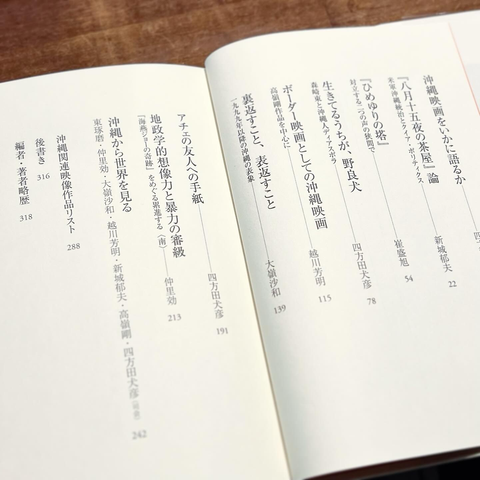 沖縄映画をいかに語るか
新城郁夫
22
『八月十五夜の茶屋』論
米軍沖縄統治とクィア・ポリティクス
崔盛旭
54
『ひめゆりの塔』
対立する二つの声の狭間で
四方田犬彦
78
生きてるうちが、野良犬
森崎東と沖縄人ディアスポラ
越川芳明
115
ボーダー映画としての沖縄映画
高嶺剛作品を中心に
大嶺沙和
139
裏返すこと、表返すこと
一九九九年以降の沖縄の表象
アチェの友人への手紙
四方田犬彦
191
地政学的想像力と暴力の審級
『海燕ジョーの奇跡』をめぐる〈南〉
仲里効
213
沖縄から世界を見る
東琢磨・仲里効・大嶺沙和・越川芳明・新城郁夫・高嶺剛・四方田犬彦
242
沖縄関連映像作品リスト
288
後書き
316
編者・著者略歴
318